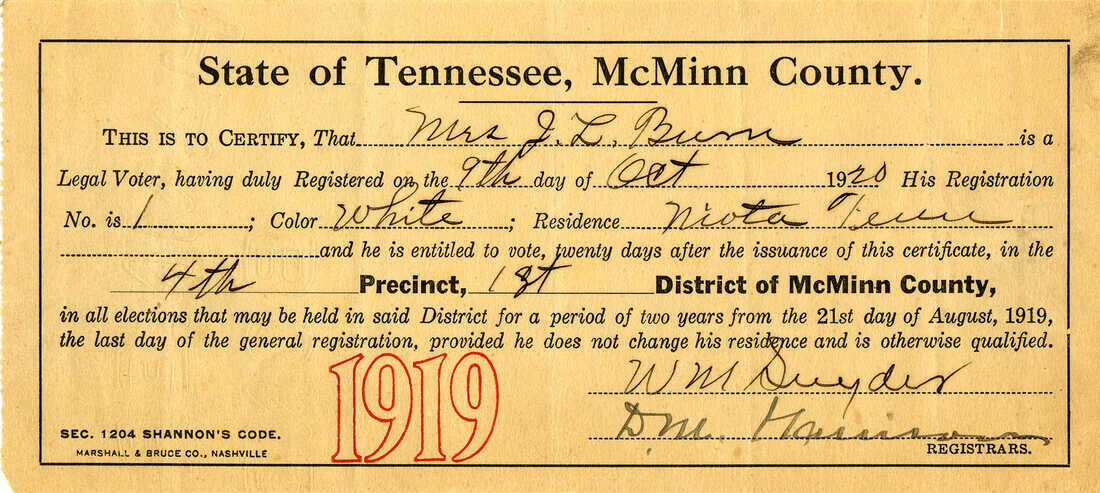 State of Tennessee, McMinn County.
THIS IS TO CERTIFY, That Mrs J. L. Burn is a
Legal Voter, having duly Registered on the 9th day of Oct 1920 His Registration
No. is 1 ; Color White ; Residence Niota Tenn
and he is entitled to vote, twenty days after the issuance of this certificate, in the
4th Precinct, 1st District of McMinn County,
in all elections that may be held in said District for a period of two years from the 21st day of August, 1919,
the last day of the general registration, provided he does not change his residence and is otherwise qualified.
1919
W M Snyder
D. M. Harrison
SEC. 1204 SHANNON'S CODE.
MARSHALL & BRUCE CO., NASHVILLE
REGISTRARS.